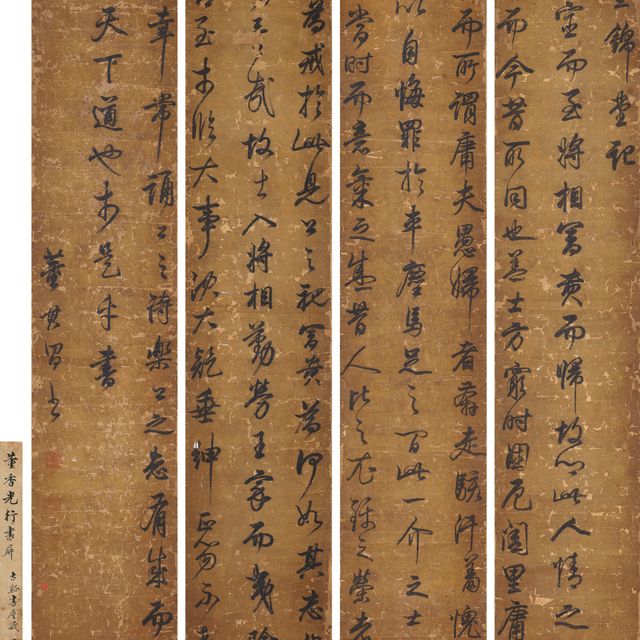 錦堂記
宦而至將相富貴而歸故鄉此人情之
而今昔所同也蓋士方窮時困厄閭里庸
而所謂庸夫愚婦者奔走駭汗羞愧
以自悔罪於車塵馬足之間此一介之士
當時而意氣之盛昔人比之衣錦之榮者
為戒於此見公之視富貴為何如其志
之武故出入將相勤勞王家而夷險
至於臨大事決大議垂紳正笏不動
幸常誦公之詩樂公之志有成而
天下道也於是乎書
董其昌書
董香光行書屏